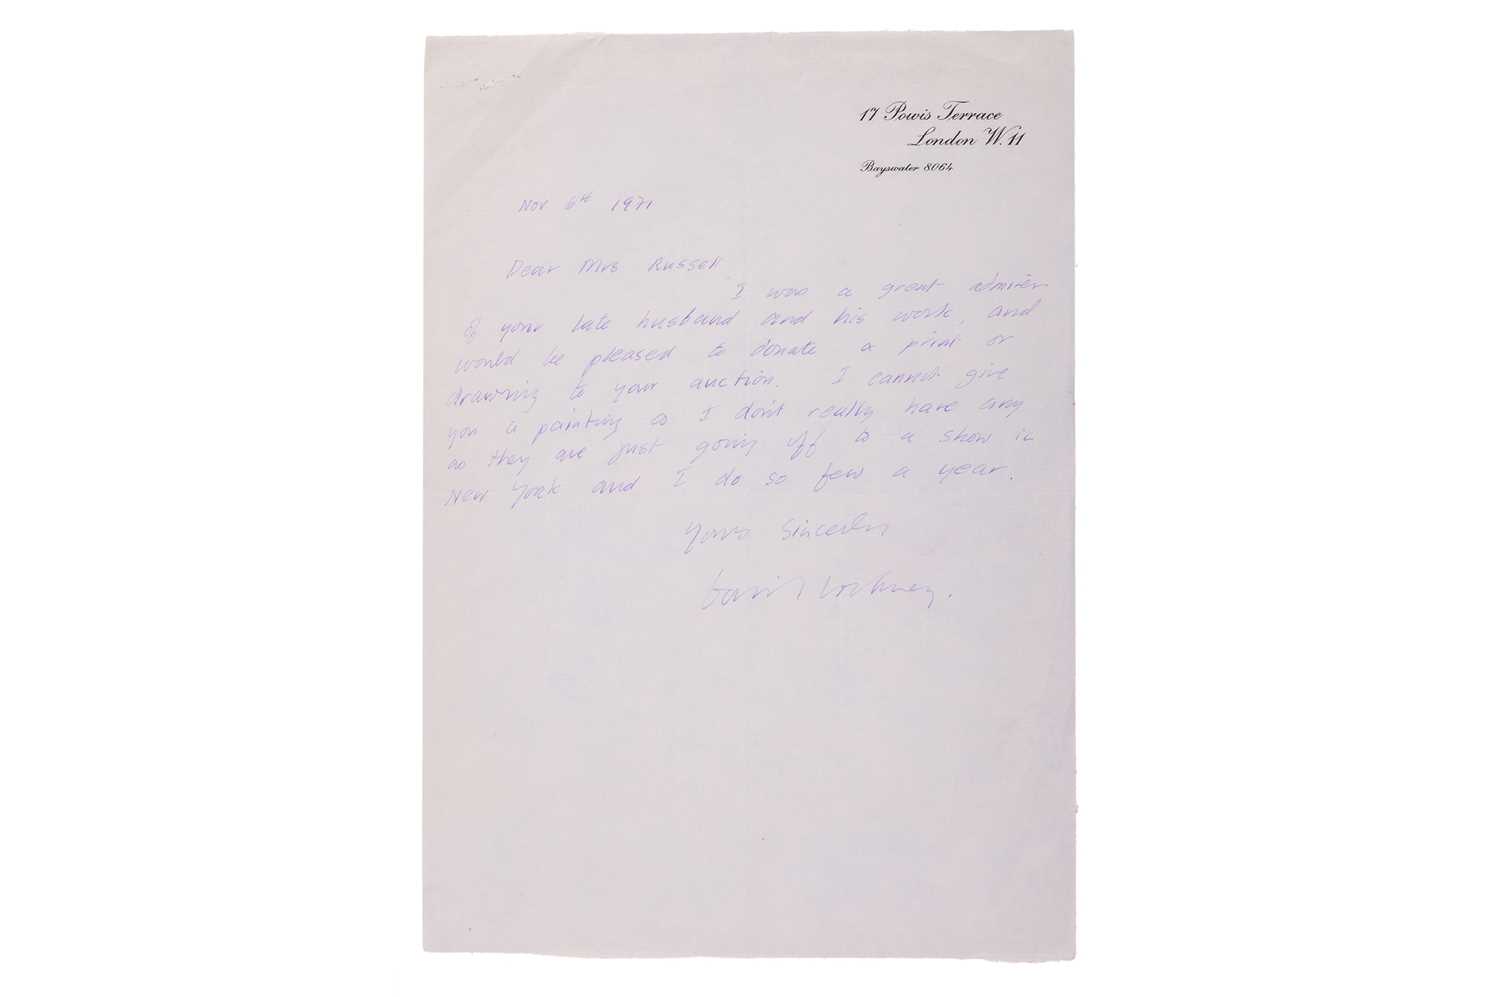 17 Powis Terrace
London W.11
Bayswater 8064
Nov 6th 1971
Dear Mrs Russell
I was a great admirer
of your late husband and his work, and
would be pleased to donate a print or
drawing to your auction. I cannot give
you a painting as I don't really have any
as they are just going off to a show in
New York and I do so few a year.
Yours Sincerely
David Hockney.